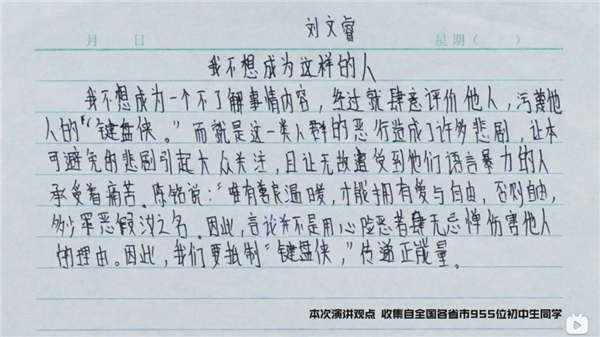 刘文睿
月 日 星期( )
我不想成为这样的人
我不想成为一个不了解事情内容,经过就肆意评价他人,污蔑他
人的“键盘侠。”而就是这一类人群的恶行造成了许多悲剧,让本
可避免的悲剧引起大众关注,且让无故遭受到他们语言暴力的人
承受着痛苦。陈铭说:“唯有善良温暖,才能拥有爱与自由,否则自由,
多少罪恶假汝之名。因此,言论并不是用心险恶者肆无忌惮伤害他人
的理由。因此,我们要抵制“键盘侠,”传递正能量。
本次演讲观点 收集自全国各省市955位初中生同学